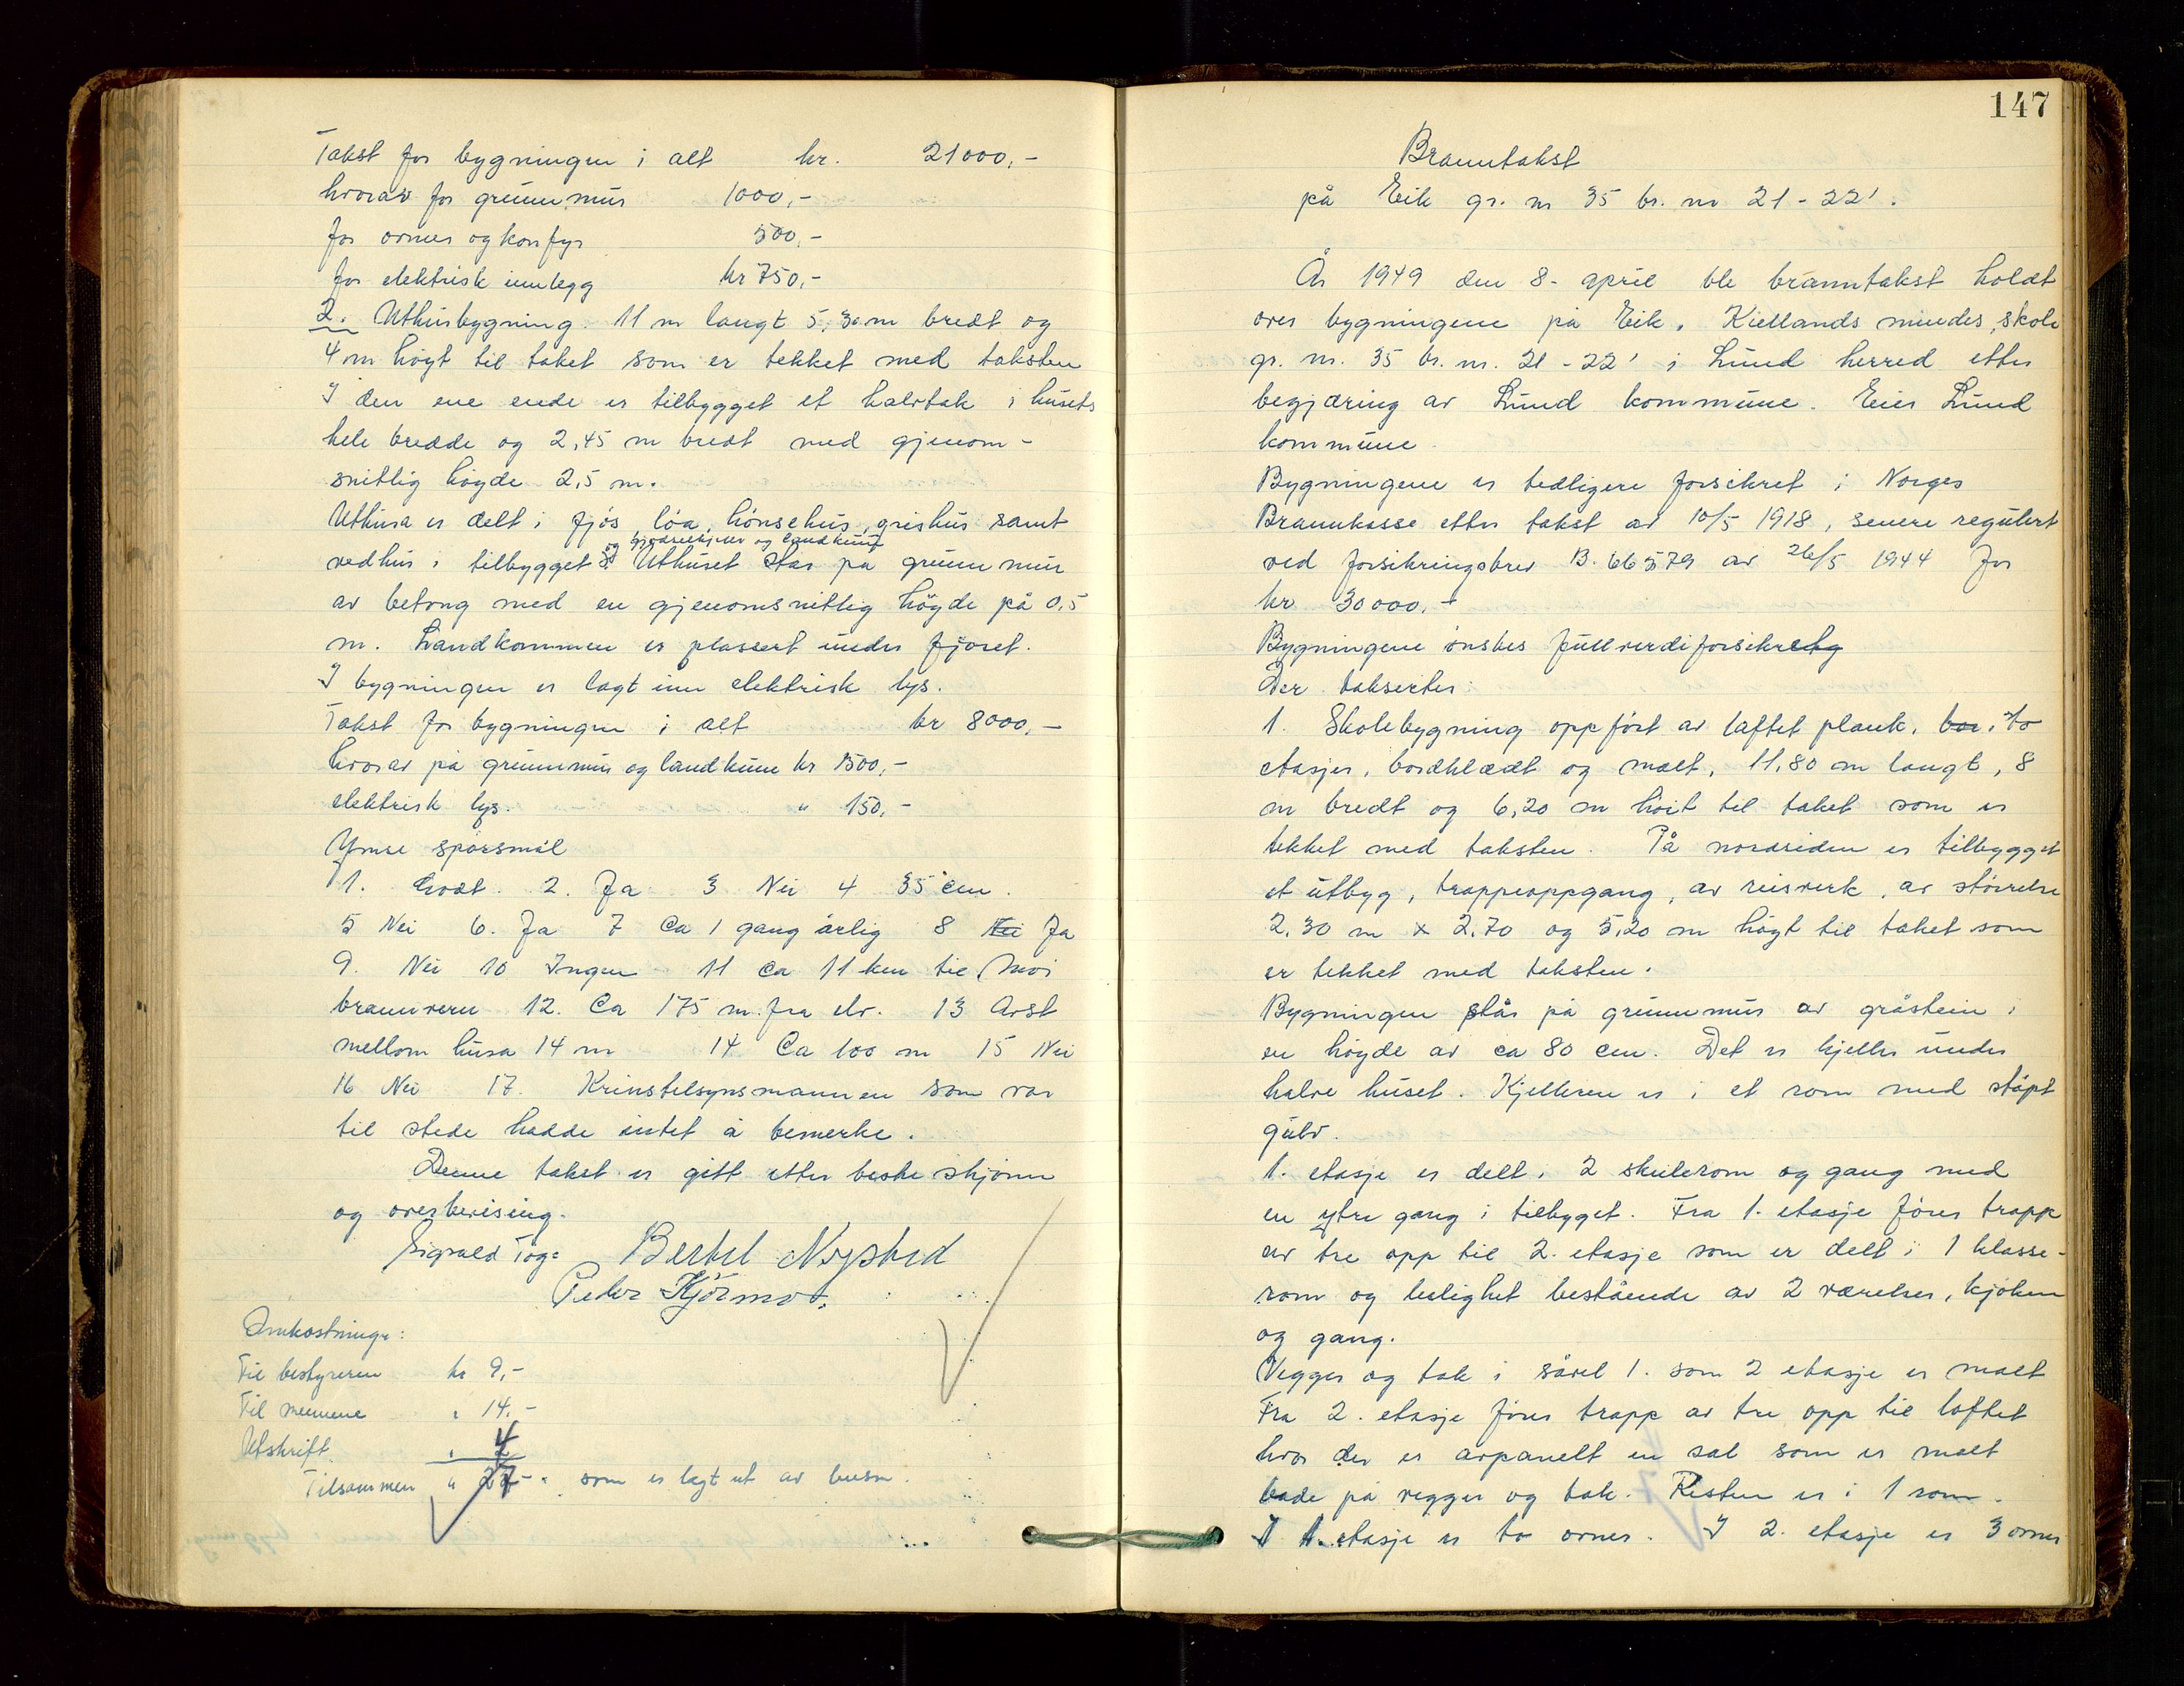 Takst for bygningen i alt kr. 21000,-
hvorav for grunnmur 1000,-
for ovner og komfyr 500,-
for elektrisk innlegg kr 750,-
2. Uthusbygning. 11 m langt 5,30 m bredt og
4 m høgt til taket som er tekket med taksten
I den ene ende er tilbygget et halvtak i husets
hele bredde og 2,45 m bredt med gjenom-
snitlig høgde 2,5 m.
Uthusa er delt i fjøs, løa, hønsehus, grishus samt
og gjødselkjeller og landkum
vedhus i tilbygget. Uthuset står på grunnmur
av betong med en gjenomsnitlig høgde på 0,5
m. Landkommen er plassert under fjøset.
I bygningen er lagt inn elektrisk lys.
Takst for bygningen i alt kr 8000,-
hvorav på grunnmur og landkum kr 1500,-
elektrisk lys. " 150,-
Ymse spørsmål
1. Godt. 2. Ja 3 Nei 4 35 cm.
5 Nei 6. Ja 7 Ca 1 gang årlig 8 Nei Ja
9. Nei 10 Ingen 11 Ca 11 km til Moi
brannvern 12. Ca 175 m. fra elv. 13 Avst
mellom husa 14 m 14 Ca 100 m 15 Nei
16 Nei 17. Krinstilsynsmannen som var
til stede hadde intet å bemerke.
Denne takst er gitt etter beste skjønn
og overbevising.
Sigvald Bertel Nysted
Peder
Omkostninger:
Til bestyreren kr 9,-
Til mennene " 14,-
Utskrift " 4
Tilsammen " 27- som er lagt ut av
147
Branntakst
på Eik gr. nr 35 br. nr 21-22'.
År 1949 den 8. april ble branntakst holdt
over bygningene på Eik, Kiellands mindes skole
gr. nr. 35 br. nr. 21-22' i Lund herred etter
begjæring av Lund kommune. Eier Lund
kommune
Bygningene er tedligere forsikret i Norges
Brannkasse etter takst av 10/5 1918, senere regulert
ved forsikringsbrev B. 66579 av 26/5 1944 for
kr 30000,-
Bygningene ønskes fullverdiforsikret
Der taksertes:
1. Skolebygning oppført av laftet plank, i to
etasjer, bordkledt og malt, 11,80 m langt, 8
m bredt og 6,20 m høit til taket som er
tekket med taksten. På nordsiden er tilbygget
et utbyg, trappeoppgang, av reisverk, av størrelse
2,30 m x 2,70 og 5,20 m høgt til taket som
er tekket med taksten.
Bygningen står på grunnmur av gråstein i
en høgde av ca 80 cm. Det er kjeller under
halve huset. Kjelleren er i et rom med støpt
gulv.
1. etasje er delt i 2 skulerom og gang med
en ytre gang i tilbyget. Fra 1. etasje fører trapp
av tre opp til 2. etasje som er delt i 1 klasse-
rom og leilighet bestående av 2 værelser, kjøken
og gang.
Vegger og tak i såvel 1. som 2 etasje er malt
Fra 2. etasje fører trapp av tre opp til loftet
hvor der er avpanelt en sal som er malt
både på vegger og tak. Resten er i 1 rom.
I 1. etasje er to ovner. I 2. etasje er 3 ovner